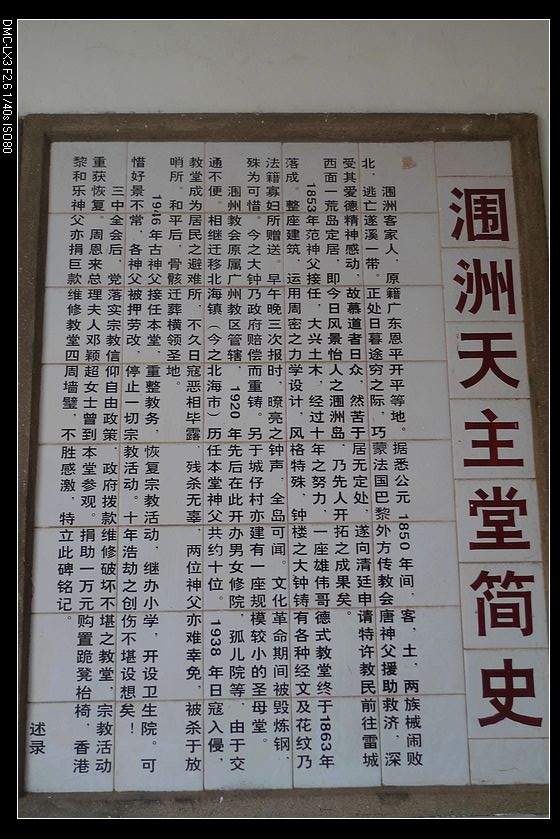 DMC-LX3 F2.6 1/40s ISO80
涠洲天主堂简史
涠洲客家人，原籍广东恩平开平等地。据悉公元 1850 年间，客，土，两族械闹败
北，逃亡遂溪一带。正处日暮途穷之际，巧蒙法国巴黎外方传教会唐神父援助救济，深
受其爱德精神感动，故慕道者日众，然苦于居无定处，遂向清廷申请特许教民前往雷城
西面一荒岛定居，即今日风景怡人之涠洲岛，乃先人开拓之成果矣。
1853年范神父接任，大兴土木，经过十年之努力，一座雄伟哥德式教堂终于1863年
落成。整座建筑，运用周密之力学设计，风格特殊，钟楼之大钟铸有各种经文及花纹乃
法籍寡妇所赠送。早午晚三次报时，嘹亮之钟声，全岛可闻。文化革命期间被毁炼钢，
殊为可惜。今之大钟乃政府赔偿而重铸。另于城仔村亦建有一座规模较小的圣母堂。
涠洲教会原属广州教区管辖，1920 年先后在此开办男女修院，孤儿院等，由于交
通不便。相继迁移北海镇（今之北海市）历任本堂神父共约十位。1938 年日寇入侵，
教堂成为居民之避难所，不久日寇恶相毕露，残杀无辜，两位神父亦难幸免，被杀于放
哨所。和平后，骨骸迁葬横领圣地。
1946年古神父接任本堂，重整教务，恢复宗教活动，继办小学，开设卫生院。可
惜好景不常，各神父被押劳改，停止一切宗教活动。十年浩劫之创伤不堪设想矣！
三中全会后，党落实宗教信仰自由政策，政府拨款维修破坏不堪之教堂，宗教活动
重获恢复。周恩来总理夫人邓颖超女士曾到本堂参观。捐助一万元购置跪凳枱椅，香港
黎和乐神父亦捐巨款维修教堂四周墙璧，不胜感激，特立此碑铭记。
述录